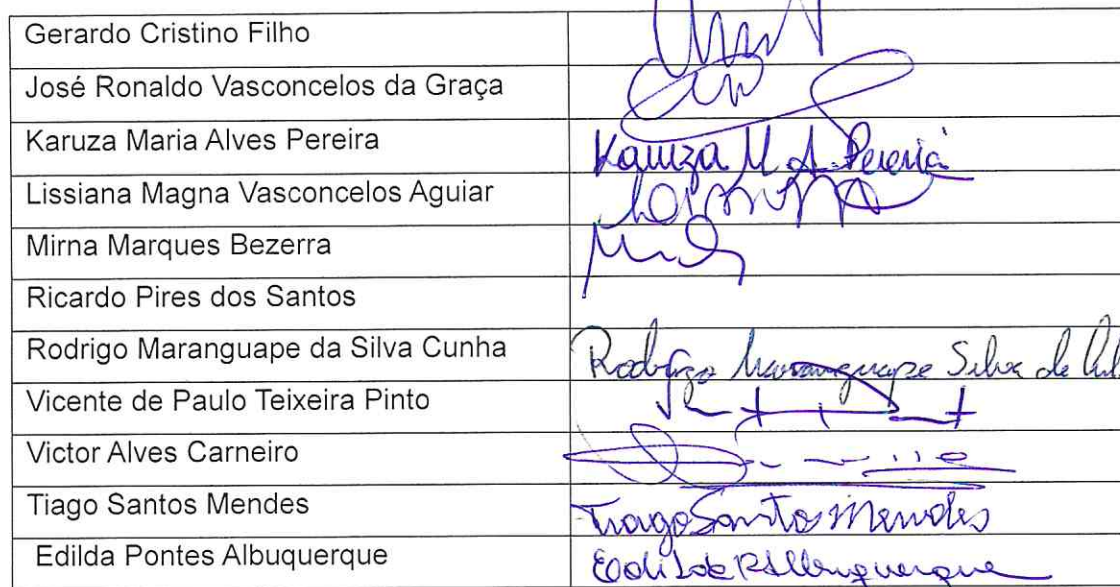 Gerardo Cristino Filho
José Ronaldo Vasconcelos da Graça
Karuza Maria Alves Pereira Karuza M. A. Pereira
Lissiana Magna Vasconcelos Aguiar
Mirna Marques Bezerra
Ricardo Pires dos Santos
Rodrigo Maranguape da Silva Cunha Rodrigo Maranguape Silva da
Vicente de Paulo Teixeira Pinto
Victor Alves Carneiro
Tiago Santos Mendes Tiago Santos Mendes
Edilda Pontes Albuquerque Edilda P Albuquerque